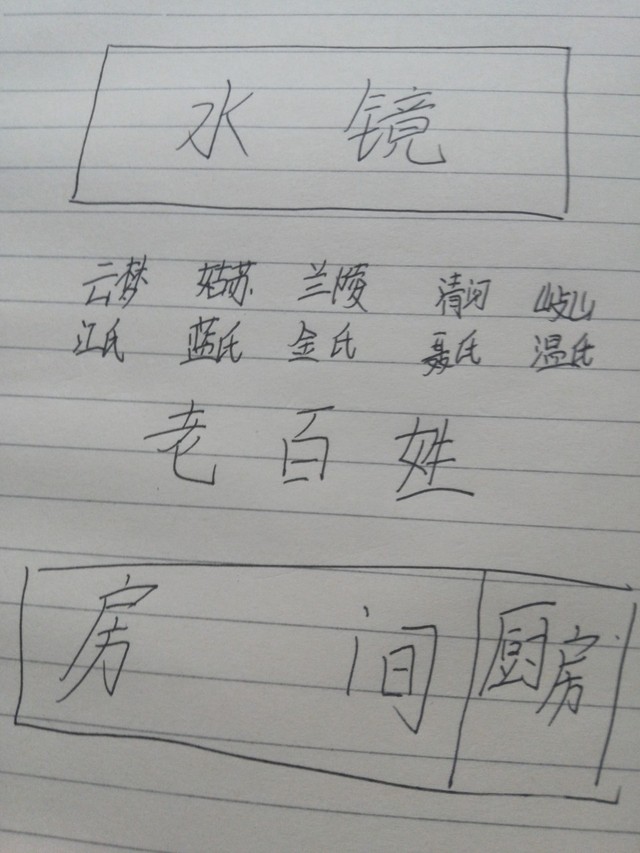 水 镜
云梦 姑苏 兰陵 清河 岐山
江氏 蓝氏 金氏 聂氏 温氏
老百姓
房 间 厨房